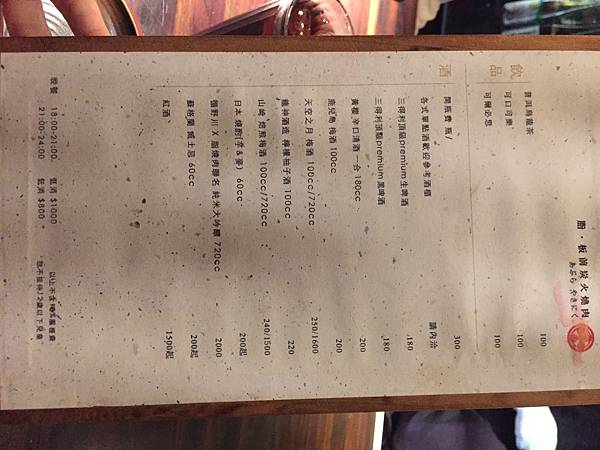 脂·板前炭火燒肉
あぶら やきにく
飲品
普洱烏龍茶 100
可口可樂 100
可爾必思 100
酒
開瓶費 瓶/ 300
各式單點酒歡迎參考酒櫃 請內洽
三得利頂級premium生啤酒 180
三得利頂級premium黑啤酒 180
黃櫻 辛口清酒 一合 180cc 200
鹿兒島 梅酒 100cc 200
天空之月 梅酒 100cc/720cc 250/1600
龍神酒造 檸檬柚子酒 100cc 220
山崎 焙煎梅酒 100cc/720cc 240/1500
日本 燒酎(芋&麥) 60cc 200起
醴野川 X 脂燒肉聯名 純米大吟釀 720cc 2000
蘇格蘭 威士忌 60cc 200起
紅酒 1500起
晚餐 18:00-21:00. 低消 $1000
21:00-24:00 低消 $800
以上不含10%服務費
恕不接待12歲以下兒童